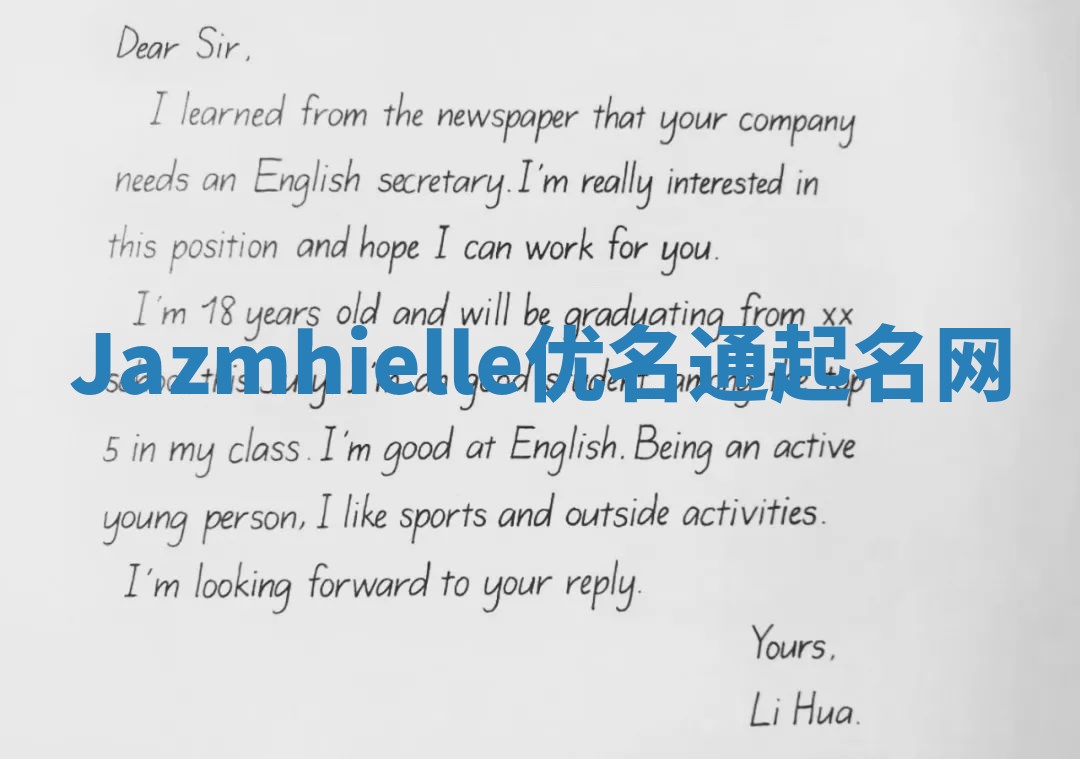 Dear Sir,
I learned from the newspaper that your company
needs an English secretary. I'm really interested in
this position and hope I can work for you.
I'm 18 years old and will be graduating from xx
Jazmhielle优名通起名网
school this July. I'm an good student among the top
5 in my class. I'm good at English. Being an active
young person, I like sports and outside activities.
I'm looking forward to your reply.
Yours,
Li Hua.